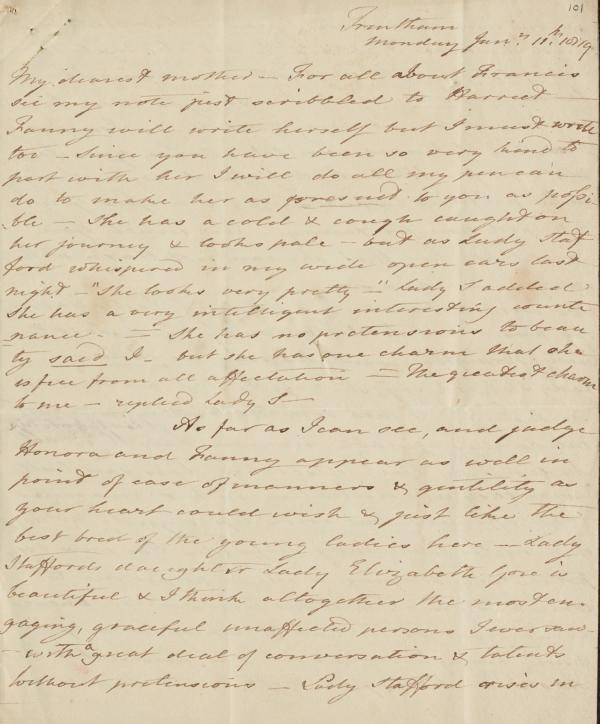 101
Trentham
Monday Jan.y 11th. 1819
My dearest mother – For all about Francis
see my note just scribbled to Harriet –
Fanny will write herself but I must write
too – Since you have been so very kind to
part with her I will do all my pen can
do to make her as present to you as possi
ble – She has a cold & cough caught on
her journey & looks pale – but as Lady Staf
ford whispered in my wide open ears last
night – "She looks very pretty –" Lady S added
She has a very intelligent interesting counte
nance – = She has no pretensions to beau
ty said I – but she has one charm that she
is free from all affectation = The greatest charm
to me – replied Lady S –
As far as I can see, and judge
Honora and Fanny appear as well in
point of ease of manners & gentility as
your heart could wish & just like the
best bred of the young ladies here – Lady
Staffords daughter Lady Elizabeth Gore is
beautiful & I think altogether the most en
gaging, graceful unaffected persons I ever saw –
– with a great deal of conversation & talents
without pretensions – Lady Stafford rises in